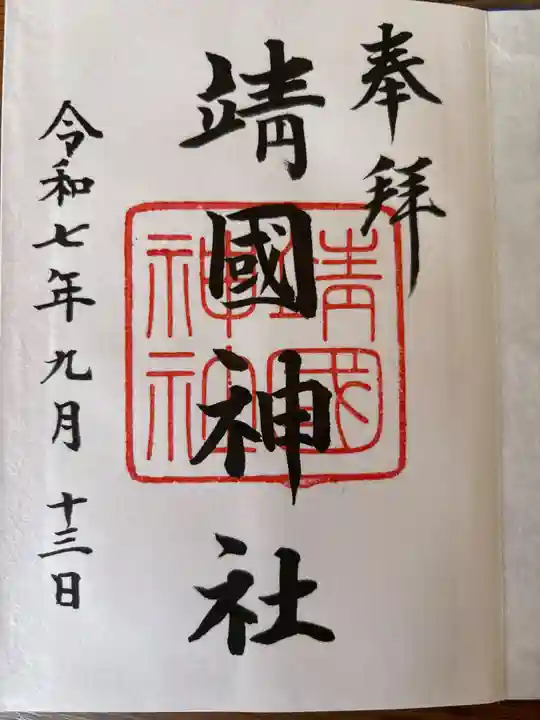 奉拝
靖國神社
靖国神社
令和七年九月十三日